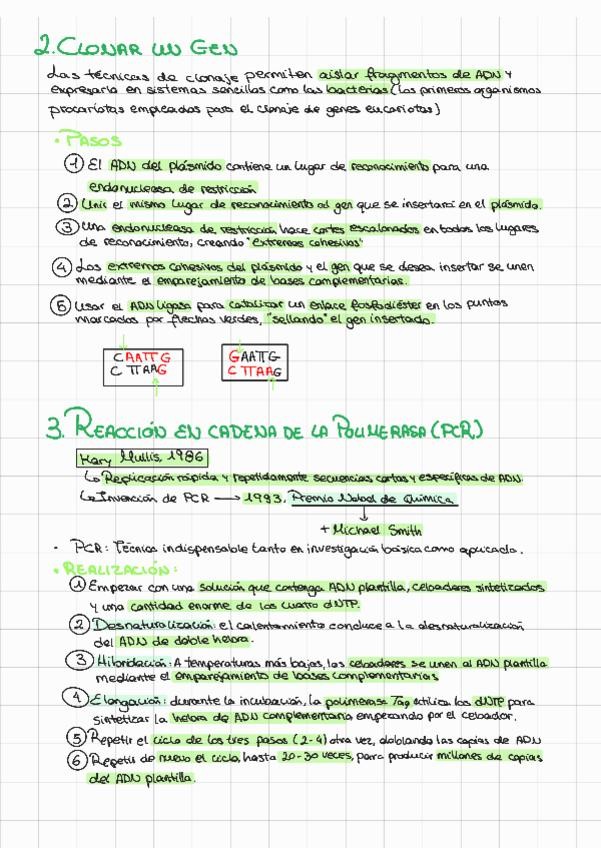 2. CLONAR UN GEN
Las técnicas de clonaje permiten aislar fragmentos de ADN y
expresarla en sistemas sencillos como las bacterias (los primeros organismos
procariotas empleados para el clonaje de genes eucariotas)
• PASOS
① El ADN del plásmido contiene un lugar de reconocimiento para una
endonucleasa de restricción
② Unir el mismo lugar de reconocimiento al gen que se insertará en el plásmido.
③ Una endonucleasa de restricción hace cortes escalonados en todos los lugares
de reconocimiento, creando "extremos cohesivos"
④ Los extremos cohesivos del plásmido y el gen que se desea insertar se unen
mediante el emparejamiento de bases complementarias.
⑤ Usar el ADN ligasa para catalizar un enlace fosfodiéster en los puntos
marcados por flechas verdes, "sellando" el gen insertado.
CAATTG GAATTG
CTTAAG CTTAAG
3. REACCIÓN EN CADENA DE LA POLIMERASA (PCR)
Kary Mullis, 1986
↳ Replicación rápida y repetidamente secuencias cortas y específicas de ADN.
↳ Invención de PCR → 1993, Premio Nobel de Química
+ Michael Smith
• PCR: Técnica indispensable tanto en investigación básica como aplicada.
• REALIZACIÓN:
① Empezar con una solución que contenga ADN plantilla, cebadores sintetizados
y una cantidad enorme de los cuatro dNTP.
② Desnaturalización: el calentamiento conduce a la desnaturalización
del ADN de doble hebra.
③ Hibridación: A temperaturas más bajas, los cebadores se unen al ADN plantilla
mediante el emparejamiento de bases complementarias
④ Elongación: durante la incubación, la polimerasa Taq utiliza los dNTP para
sintetizar la hebra de ADN complementaria empezando por el cebador.
⑤ Repetir el ciclo de los tres pasos (2-4) otra vez, doblando las copias de ADN
⑥ Repetir de nuevo el ciclo, hasta 20-30 veces, para producir millones de copias
del ADN plantilla.